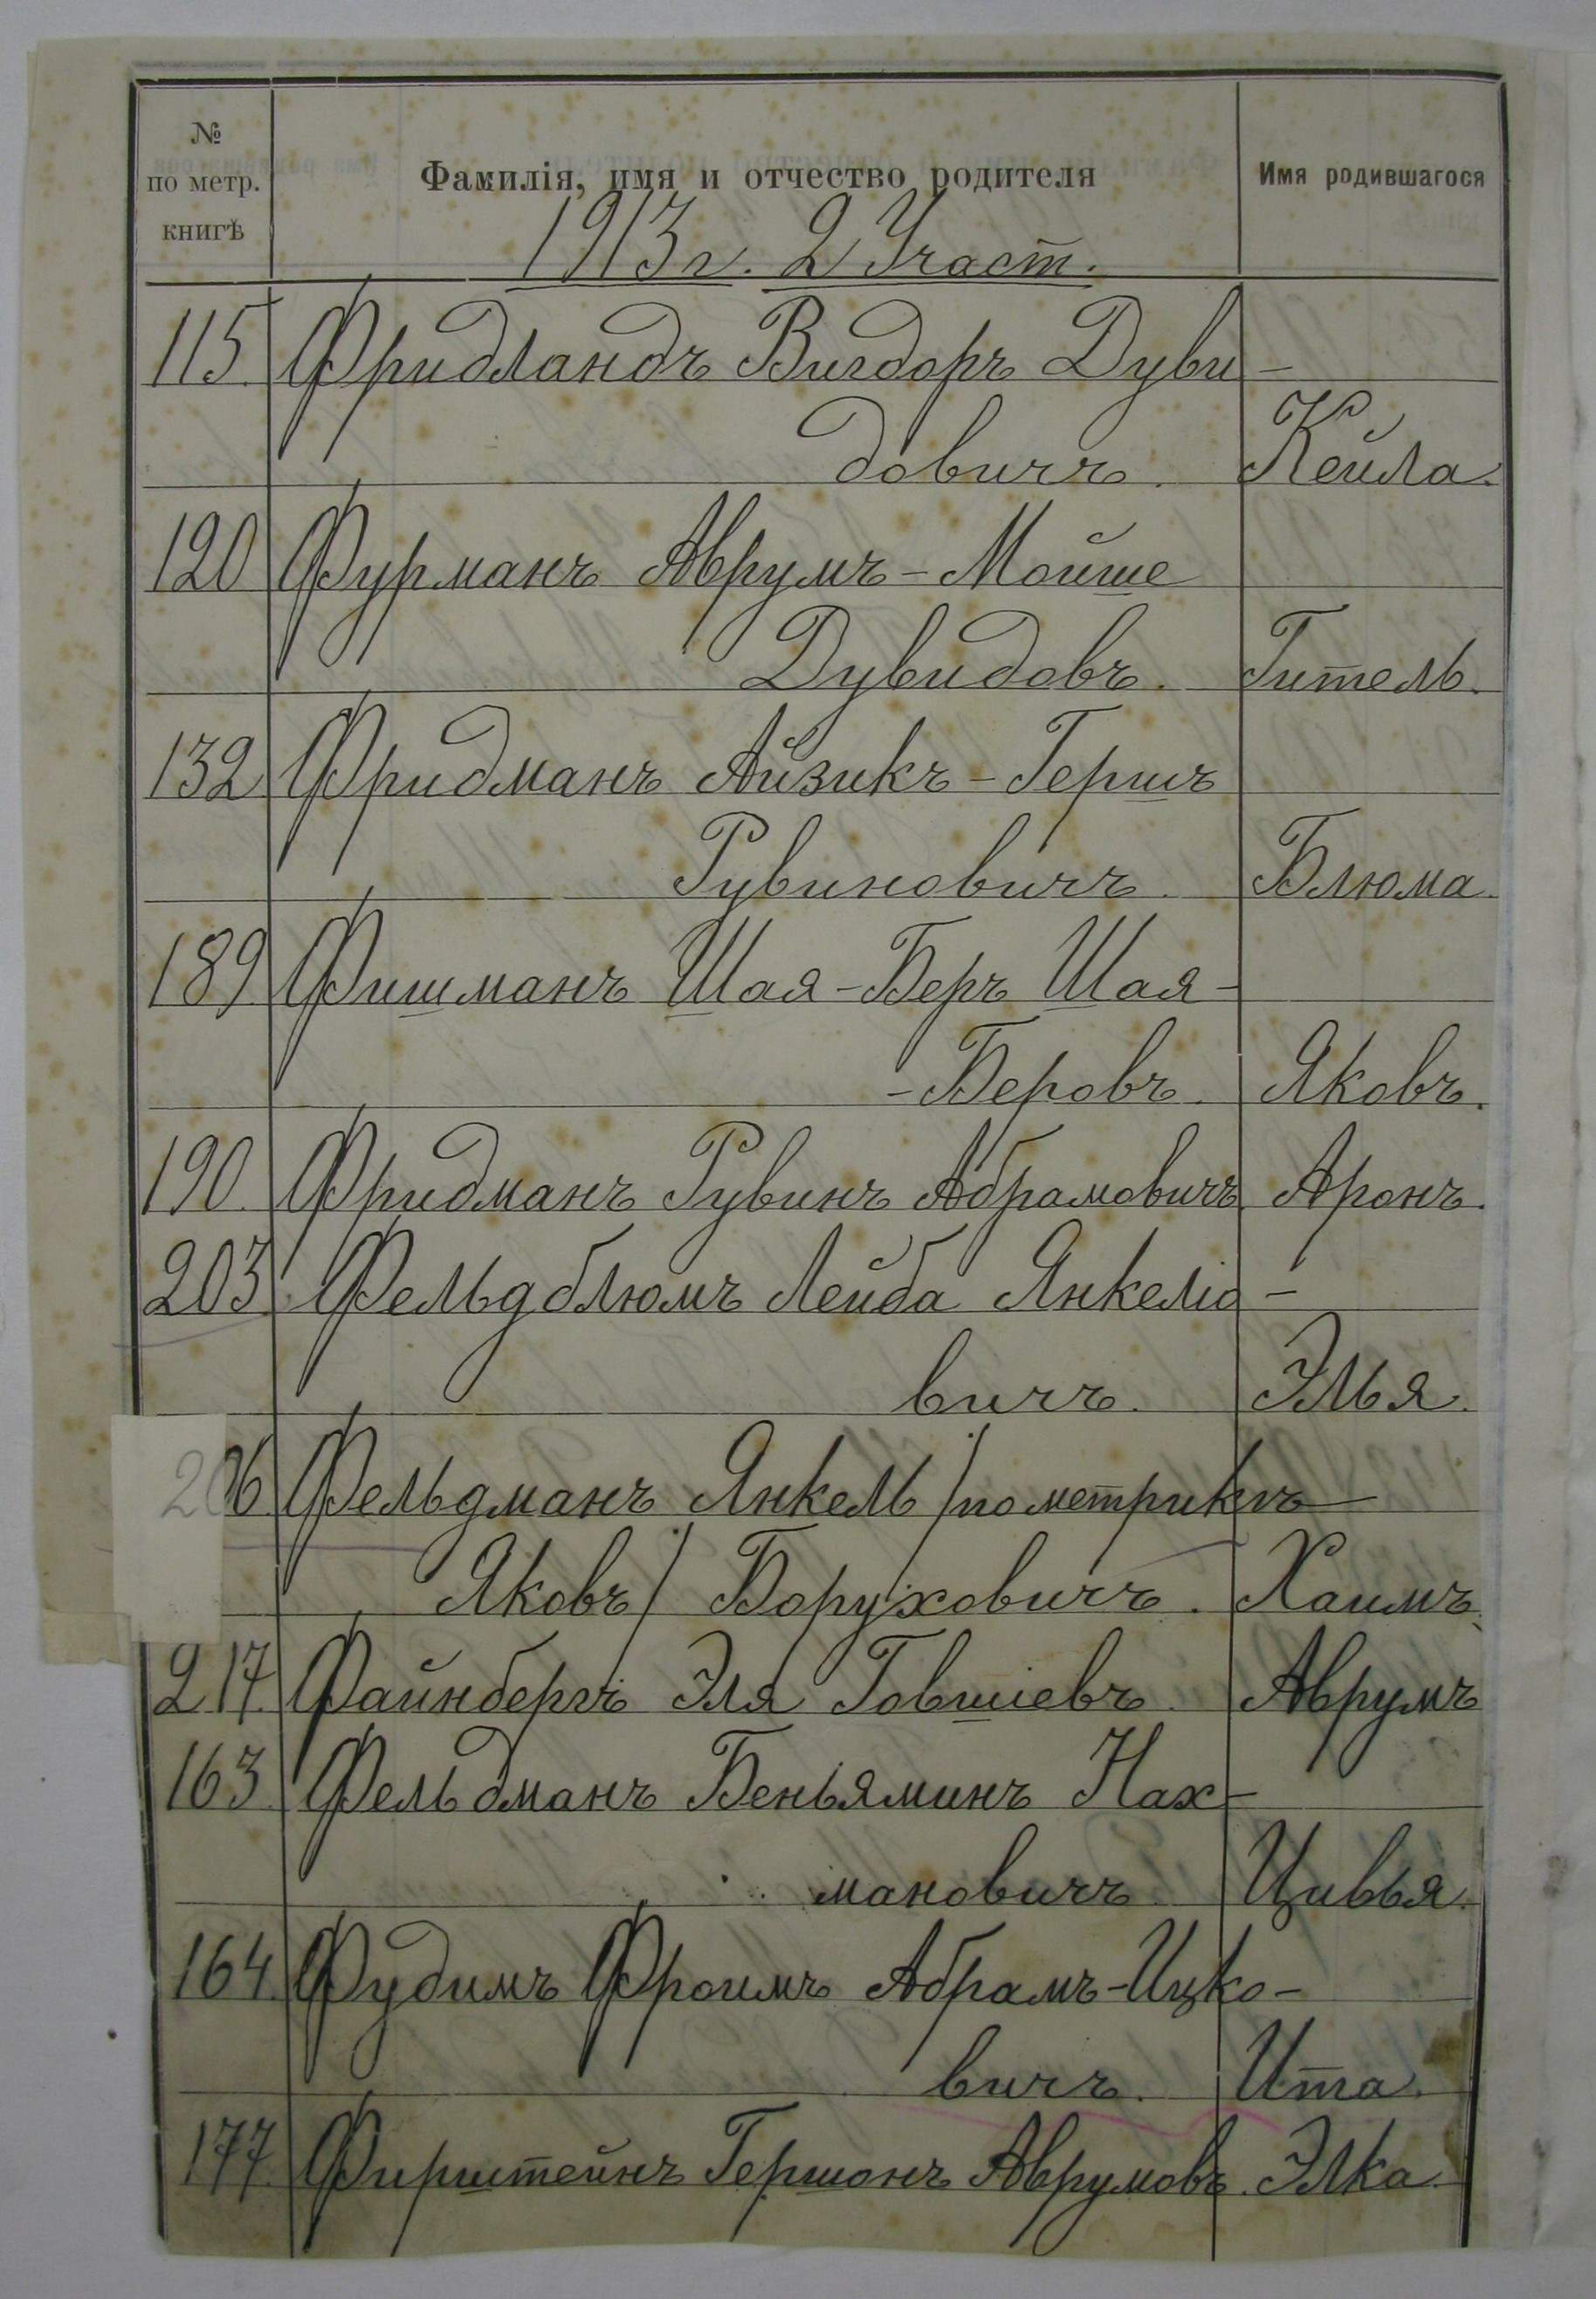 № по метр. книгѣ Фамилія, имя и отчество родителя Имя родившагося
1913 г. 2 Участ.
115. Фридландъ Вигдоръ Дуви-
довичъ. Кейла.
120 Фурманъ Аврумъ-Мойше
Дувидовъ. Гитель.
132 Фридманъ Айзикъ-Гершъ
Рувиновичъ. Блюма.
189. Фишманъ Шая-Беръ Шая-
-Беровъ. Яковъ.
190. Фридманъ Рувинъ Абрамовичъ. Аронъ.
203 Фельдблюмъ Лейба Янкеліо-
вичъ. Элья.
206. Фельдманъ Янкель /по метрикѣ
Яковъ/ Боруховичъ. Хаимъ.
217. Файнбергъ Эля Говшіевъ. Аврумъ
163. Фельдманъ Беньяминъ Нах-
мановичъ. Цивья.
164. Фудимъ Фроимъ Абрамъ-Ицко-
вичъ. Ита.
177. Фирштейнъ Гершонъ Аврумовъ. Элка.